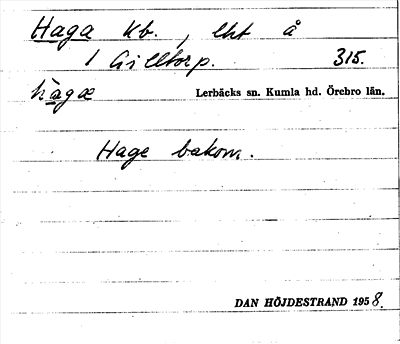 Haga kb., lht å
1 Gilltorp. 315.
hàgæ Lerbäcks sn. Kumla hd. Örebro län.
Hage bakom.
DAN HÖJDESTRAND 1958.